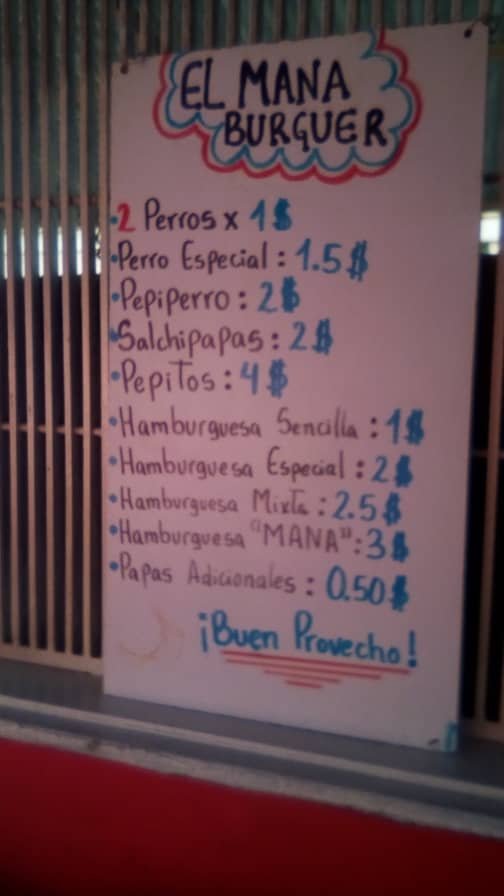 EL MANA
BURGUER
•2 Perros x 1$
•Perro Especial: 1.5$
•Pepiperro: 2$
•Salchipapas: 2$
•Pepitos: 4$
•Hamburguesa Sencilla: 1$
•Hamburguesa Especial: 2$
•Hamburguesa Mixta: 2.5$
•Hamburguesa "MANA": 3$
•Papas Adicionales: 0.50$
¡Buen Provecho!